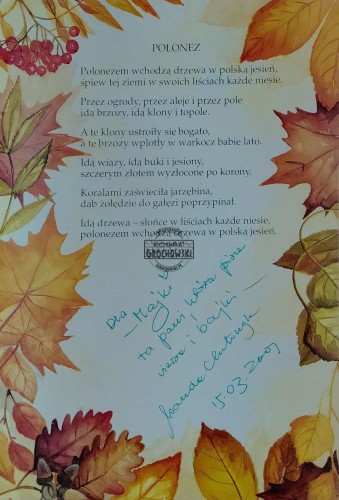 POLONEZ
Polonezem wchodzą drzewa w polską jesień,
śpiew tej ziemi w swoich liściach każde niesie.
Przez ogrody, przez aleje i przez pole
idą brzozy, idą klony i topole.
A te klony ustroiły się bogato,
a te brzozy wplotły w warkocz babie lato.
Idą wiązy, idą buki i jesiony,
szczerym złotem wyzłocone po korony.
Koralami zaświeciła jarzębina,
dąb żołędzie do gałęzi poprzypinał.
Idą drzewa – słońce w liściach każde niesie,
polonezem wchodzą drzewa w polską jesień.
ANTYKWARIAT
GROCHOWSKI
Dla
– Majki –
ta pani która pisze
wiersze i bajki –
Wanda
15.03.2007